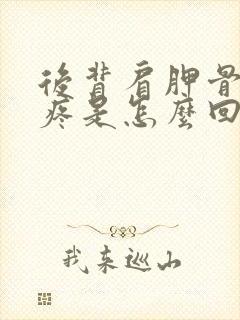 後背肩胛骨
疼是怎麼回
我來巡山